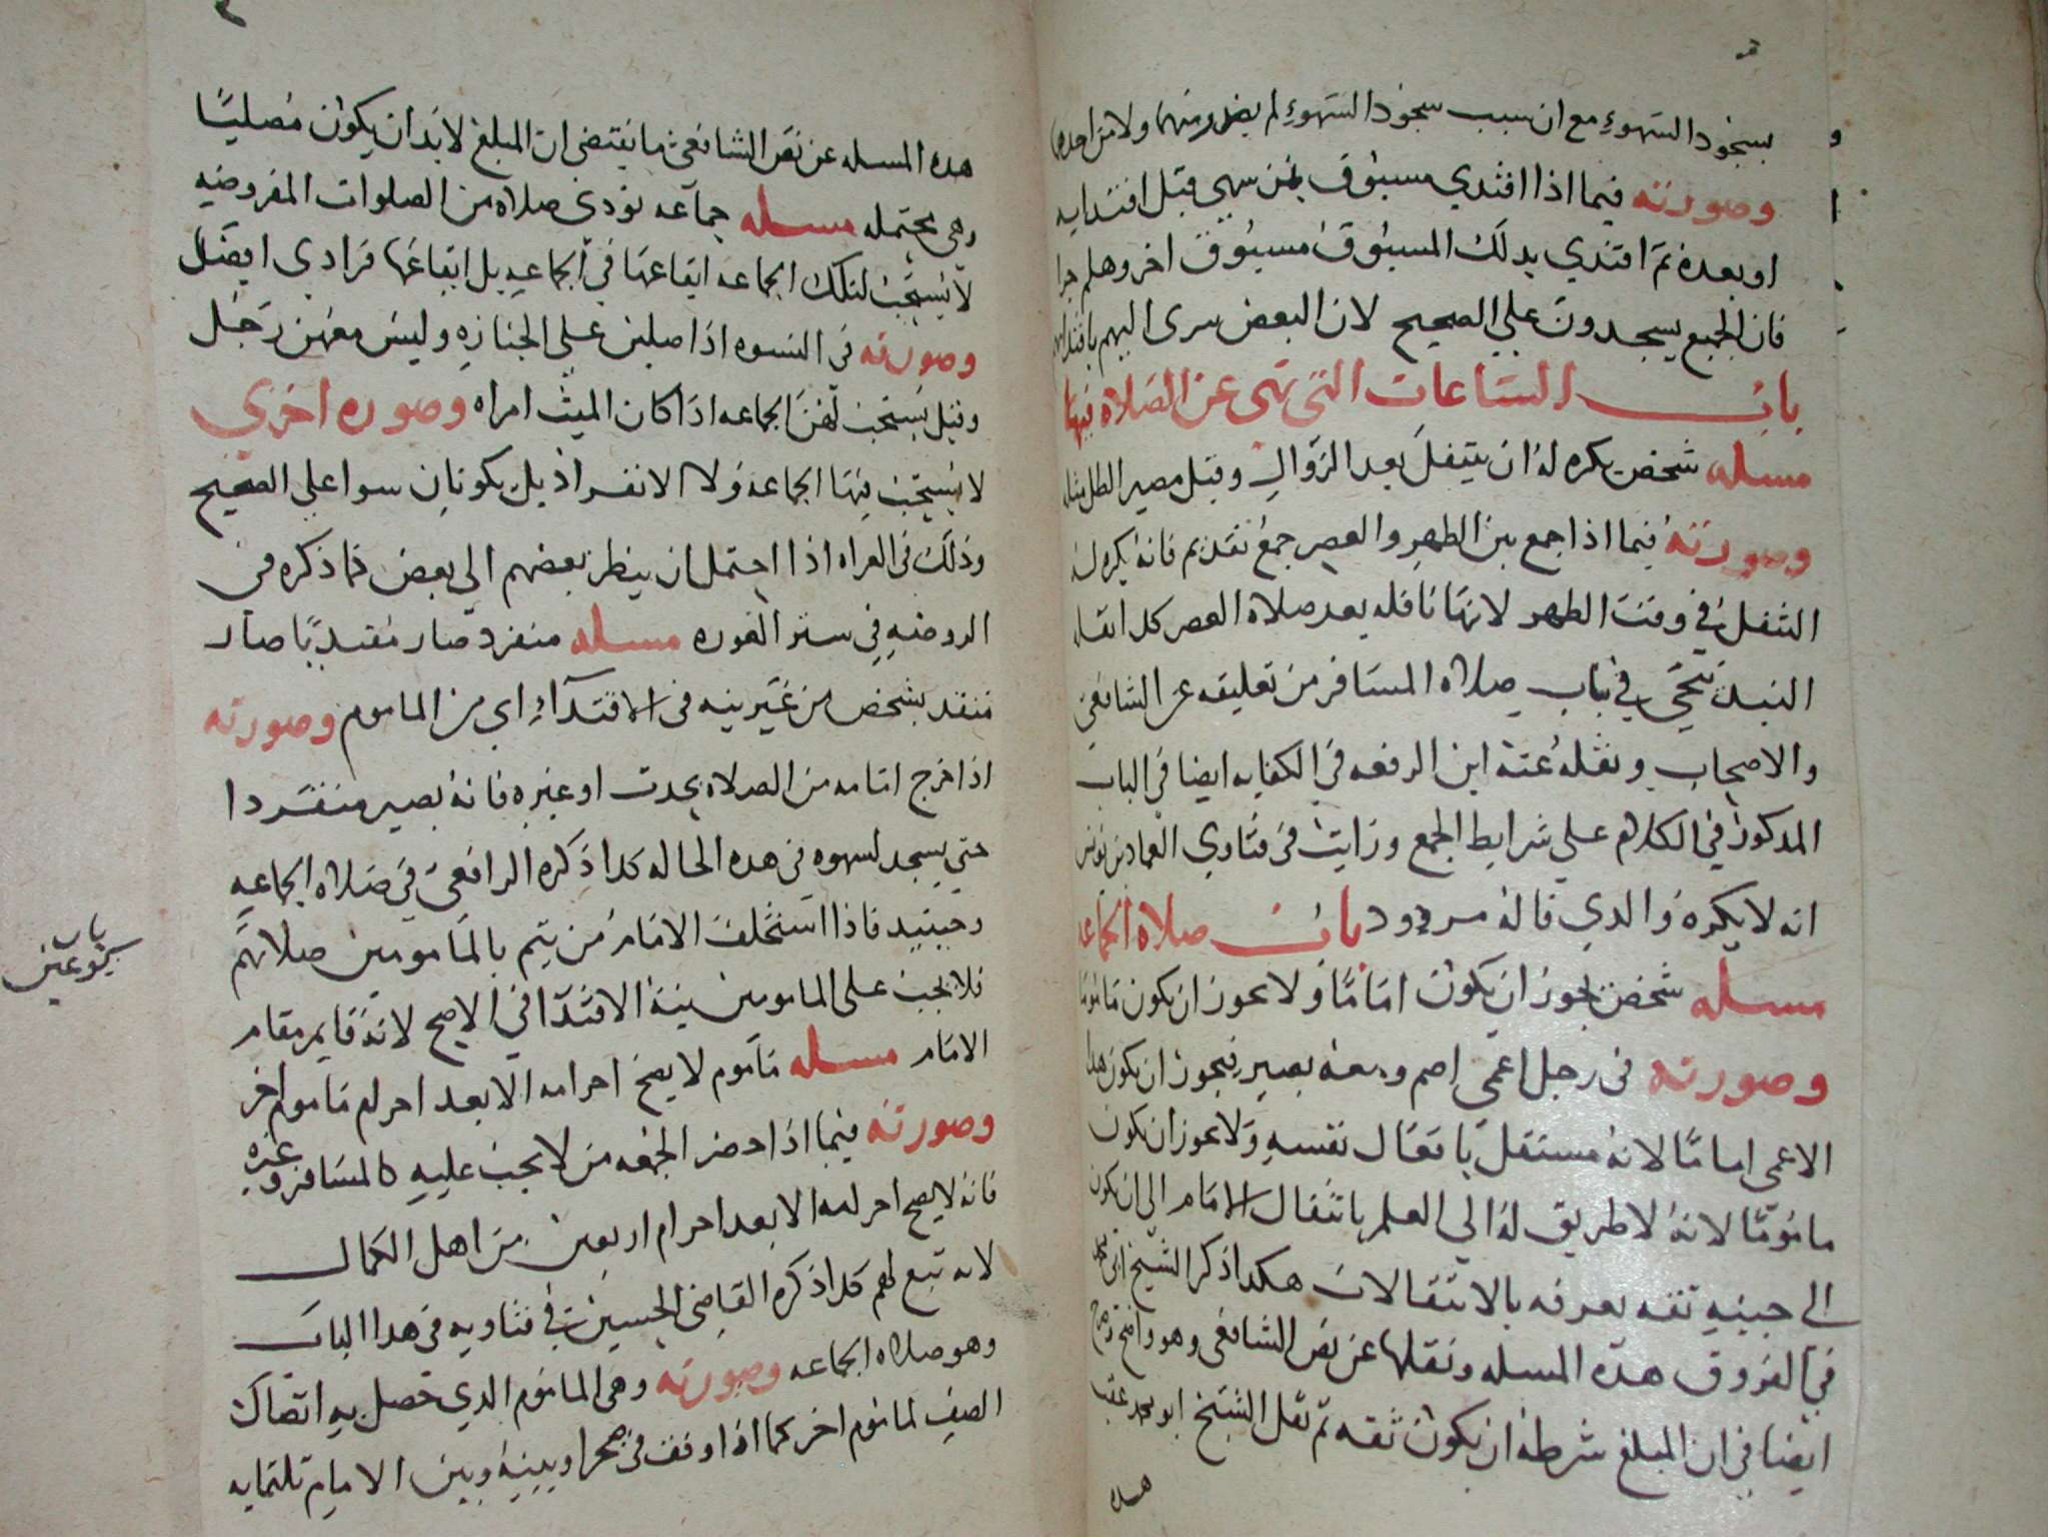 بسجود السهو مع ان سبب سجود السهو لم يصدر منهما ولا من احدهما
وصورته فيما اذا اقتدي مسبوق بمن سهي قبل اقتدايه
او بعده ثم اقتدي بدلك المسبوق مسبوق اخر وهلم جرا
فان الجميع يسجدون علي الصحيح لان البعض سرى اليهم باقتدايهم
باب الساعات التي نهى عن الصلاة فيها
مسله شخص يكره له ان يتنفل بعد الزوال وقبل مصير الظل مثله
وصورته فيما اذا جمع بين الظهر والعصر جمع تقديم فانه يكره له
التنفل في وقت الظهر لانها نافله بعد صلاة العصر كدا نقله
البندنيجي في باب صلاه المسافر من تعليقه عن الشافعي
والاصحاب ونقله عنه ابن الرفعه في الكفايه ايضا في الباب
المدكور في الكلام علي شرايط الجمع ورايت في فتاوي العماد بن يونس
انه لا يكره والدي قاله مردود باب صلاة الجماعه
مسله شخص يجوز ان يكون اماما ولا يجوز ان يكون ماموما
وصورته في رجل اعمي اصم ومعه بصير فيجوز ان يكون هدا
الاعمى اماما لانه مستقل بافعال نفسه ولا يجوز ان يكون
ماموما لانه لا طريق له الي العلم بانتقال الامام الي ان يكون
الي جنبه ثقه يعرفه بالانتقالات هكدا ذكر الشيخ ابي محمد
في الفروق هده المسله ونقلها عن نص الشافعي وهو واضح
ايضا في ان المبلغ شرطه ان يكون ثقه ثم نقل الشيخ ابو محمد عقب
هده
هده المسله عن نص الشافعي ما يقتضي ان المبلغ لا بد ان يكون مصليا
وهي محتمله مسله جماعه تودي صلاه من الصلوات المفروضه
لا يستحب لتلك الجماعه ايقاعها في الجماعه بل ايقاعها فرادي افضل
وصورته في النسوه اذا صلين علي الجنازه وليس معهن رجل
وقيل يستحب لهن الجماعه اذا كان الميت امراه وصوره اخري
لا يستحب فيها الجماعه ولا الانفراد بل يكونان سوا علي الصحيح
وذلك في العراه اذا احتمل ان ينظر بعضهم الي بعض فما ذكره في
الروضه في ستر العوره مسله منفرد صار مقتديا صار
منفد بشخص من غير نيه في الاقتداء اي من الماموم وصورته
اذا خرج امامه من الصلاه بحدث او غيره فانه يصير منفردا
حتي يسجد لسهوه في هده الحاله كدا ذكره الرافعي في صلاه الجماعه
وحينيد فاذا استخلف الامام من يتم بالمامومين صلاتهم
فلا يجب على المامومين نية الاقتدا في الاصح لانه قايم مقام
الامام مسله ماموم لا يصح احرامه الا بعد احرام ماموم اخر
وصورته فيما اذا حضر الجمعه من لا يجب عليه كالمسافر وغيره
فانه لا يصح احرامه الا بعد احرام اربعين من اهل الكمال
لانه تبع لهم كدا ذكره القاضي الحسين في فتاويه في هدا الباب
وهو صلاه الجماعه وصورته وهي الماموم الدي حصل به اتصال
الصف لماموم اخر كما اذا وقف في صحرا وبينه وبين الامام ثلثمايه
باب